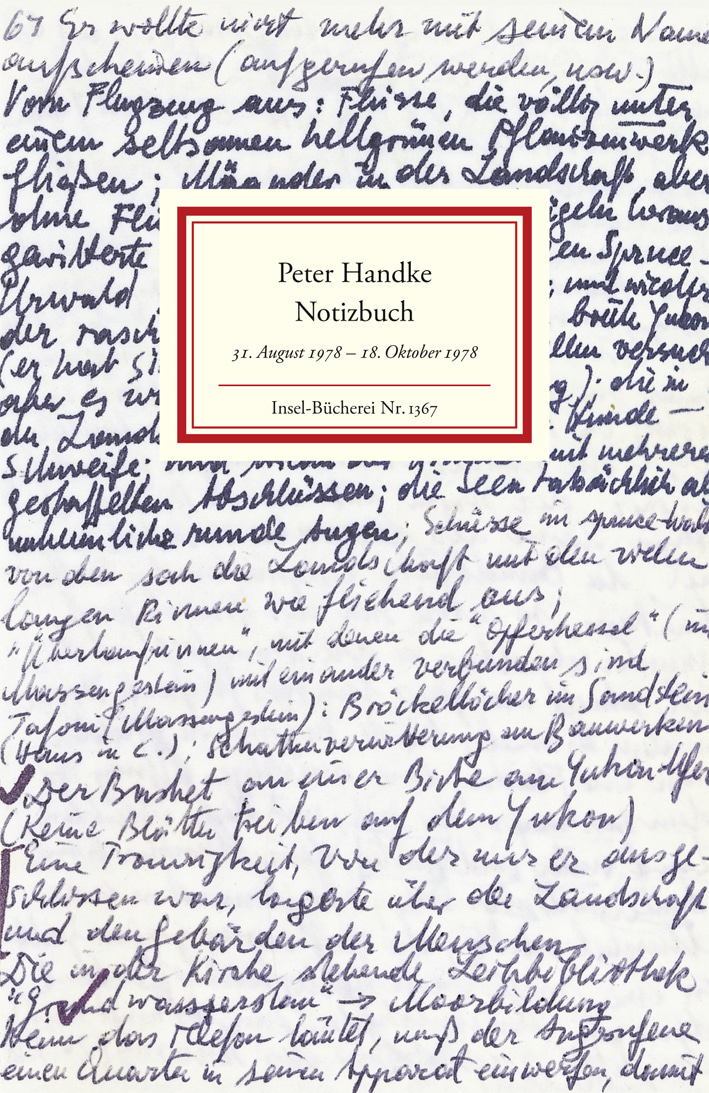 67 Er wollte nicht mehr mit seinem Name
aufscheinen (aufgerufen werden, usw.)
Vom Flugzeug aus: Flüsse, die völlig unter
einem seltsamen hellgrünen Pflanzenwerk
fließen; Mäander in der Landschaft, aber
ohne Flü
ügeln heraus
gewitterte
en Spruce-
Urwald
und wieder
der rasch
breite Yukon
(er hat si
llen versuch
aber es w
g); die in
Peter Handke
Notizbuch
31. August 1978 – 18. Oktober 1978
Insel-Bücherei Nr. 1367
der Land
Hunde —
Schweife
mit mehreren
gestaffelten Abschlüssen; die Seen tatsächlich als
unheimliche runde Augen; Schüsse im spruce-wald
von den sah die Landschaft mit den vielen
langen Rinnen wie fliehend aus;
"Überlaufrinnen", mit denen die "Opferkessel" (im
Massengestein) miteinander verbunden sind
Tafoni (Massengestein): Bröckellöcher im Sandstein
(Haus in C.); Schattenverwitterung an Bauwerken
Der Basket an einer Birke am Yukon-Ufer
(Keine Blätter treiben auf dem Yukon)
Eine Traurigkeit, von der nur er ausge-
schlossen war, lagerte über der Landschaft
und den Gebärden der Menschen
Die in der Kirche stehende Leihbibliothek
"Grundwasserstau" → Moorbildung
Wenn das Telefon läutet, muß der Angerufene
einen Quarter in seinen Apparat einwerfen, damit